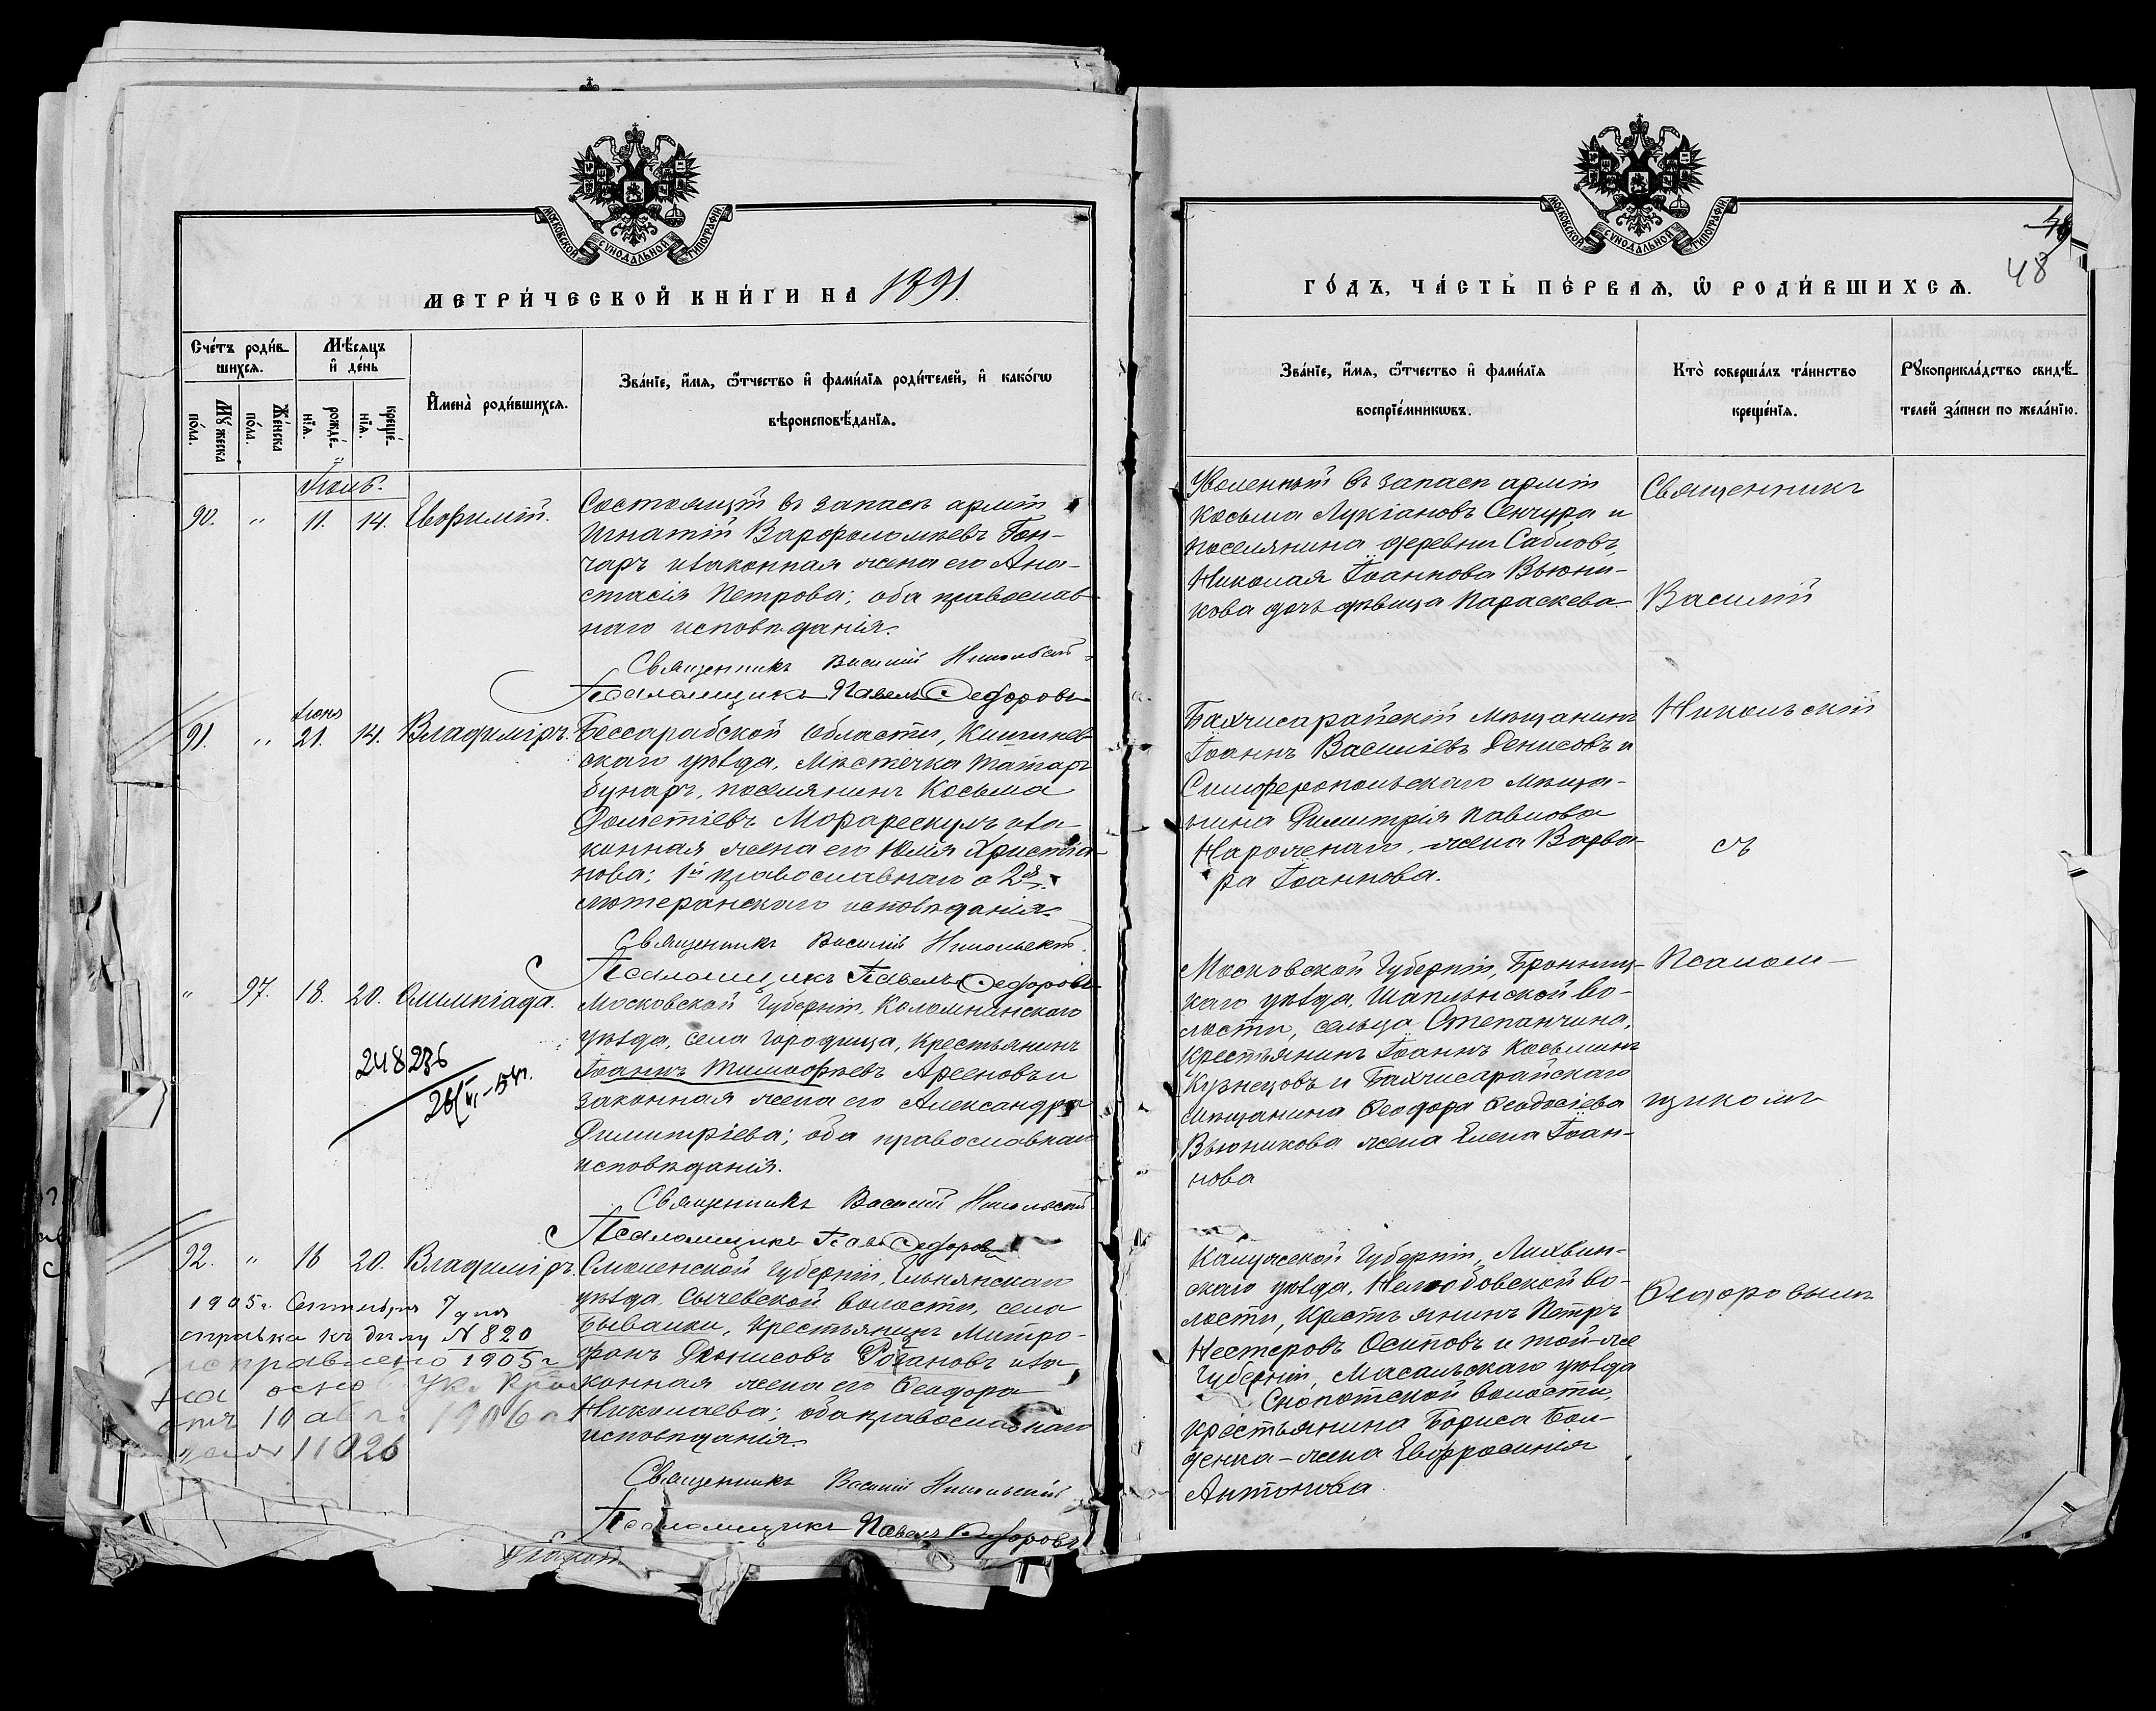 МОСКОВСКОЙ СѴНОДАЛЬНОЙ ТИПОГРАФІИ
МЕТРИ́ЧЕСКОЙ КНИ́ГИ НА 1891.
Сче́тъ роди́в-
шихся.
Мѣ́сяцъ
и҆ де́нь
Му́жеска
по́ла.
Же́нска
по́ла.
рожде́-
нїя.
креще́-
нїя.
И҆мена̀ роди́вшихся.
Зва́нїе, и҆́мя, ѻ҆́тчество и҆ фами́лїя роди́телей, и҆ како́гѡ
вѣроисповѣ́данїя.
Іюль.
90. " 11. 14. Евфимій.
Состоящій въ запасѣ арміи
Игнатій Варфоломѣевъ Гон-
чаръ и законная жена его Ана-
стасія Петрова; оба православ-
наго исповѣданія.
Священникъ Василій Никольскій
Псаломщикъ Павелъ Ѳедоровъ
Іюня
91. " 21. 14. Владиміръ.
Бессарабской области, Кишинев-
скаго уѣзда, Мѣстечка Татаръ
бунаръ, поселянинъ Косьма
Фоментіевъ Морарескулъ и за-
конная жена его Юлія Христіа-
нова; 1й православнаго а 2я
лютеранскаго исповѣданія.
Священникъ Василій Никольскій.
Псаломщикъ Павелъ Ѳедоровъ
" 97. 18. 20. Олимпіада.
Московской Губерніи, Коломнинскаго
уѣзда, села Городища, Крестьянинъ
Іоаннъ Тимофѣевъ Арсеновъ и
законная жена его Александра
Димитріева; оба православнаго
исповѣданія.
248236
26/VI-54г.
Священникъ Василій Никольскій
Псаломщикъ Павелъ Ѳедоровъ
92. " 18 20. Владиміръ.
Смоленской Губерніи, Ельнянскаго
уѣзда, Сычевской волости, села
Бывалки, Крестьянинъ Митро-
фанъ Діонисовъ Рогановъ и за-
конная жена его Ѳеодора
Николаева; оба православнаго
исповѣданія.
1905г. Сентября 7 дня
справка къ дѣлу N 820
исправлено 1905г
на основ. Ук.
10 авг. 1906
11026
Священникъ Василій Никольскій
Псаломщикъ Павелъ Ѳедоровъ
МОСКОВСКОЙ СѴНОДАЛЬНОЙ ТИПОГРАФІИ
48
ГО́ДЪ, ЧА́СТЬ ПЕ́РВАЯ, Ѡ҆ РОДИ́ВШИХСЯ.
Зва́нїе, и҆́мя, ѻ҆́тчество и҆ фами́лїя
воспрїе́мникѡвъ.
Кто̀ соверша́лъ та́инство
креще́нїя.
Рꙋкоприкла́дство свидѣ́-
телей за́писи по жела́нїю.
Уволенный въ запасъ арміи
Косьма Лукіановъ Сенчура и
поселянина деревни Сабловъ,
Николая Іоаннова Вьюни-
кова дочь дѣвица Параскева
Священникъ
Василій
Бахчисарайскій мѣщанинъ
Іоаннъ Василіевъ Денисовъ и
Симферопольскаго мѣща-
нина Димитрія Павлова
Нароженаго, жена Варва-
ра Іоаннова.
Никольскій
съ
Московской Губерніи, Бронниц-
каго уѣзда, Шаплынской во-
лости, сельца Степанчина,
Крестьянинъ Іоаннъ Косьминъ
Кузнецовъ и Бахчисарайскаго
мѣщанина Ѳеодора Ѳеодосіева
Вьюникова жена Елена Іоан-
нова
Псалом-
щикомъ
Калужской Губерніи, Лихвин-
скаго уѣзда, Нелюбовской во-
лости, Крестьянинъ Петръ
Нестеровъ Осиповъ и той-же
Губерніи, Масальскаго уѣзда
Снопотской волости,
крестьянина Бориса Бол-
денка – жена Евфросинія
Антонова.
Ѳеодоровымъ